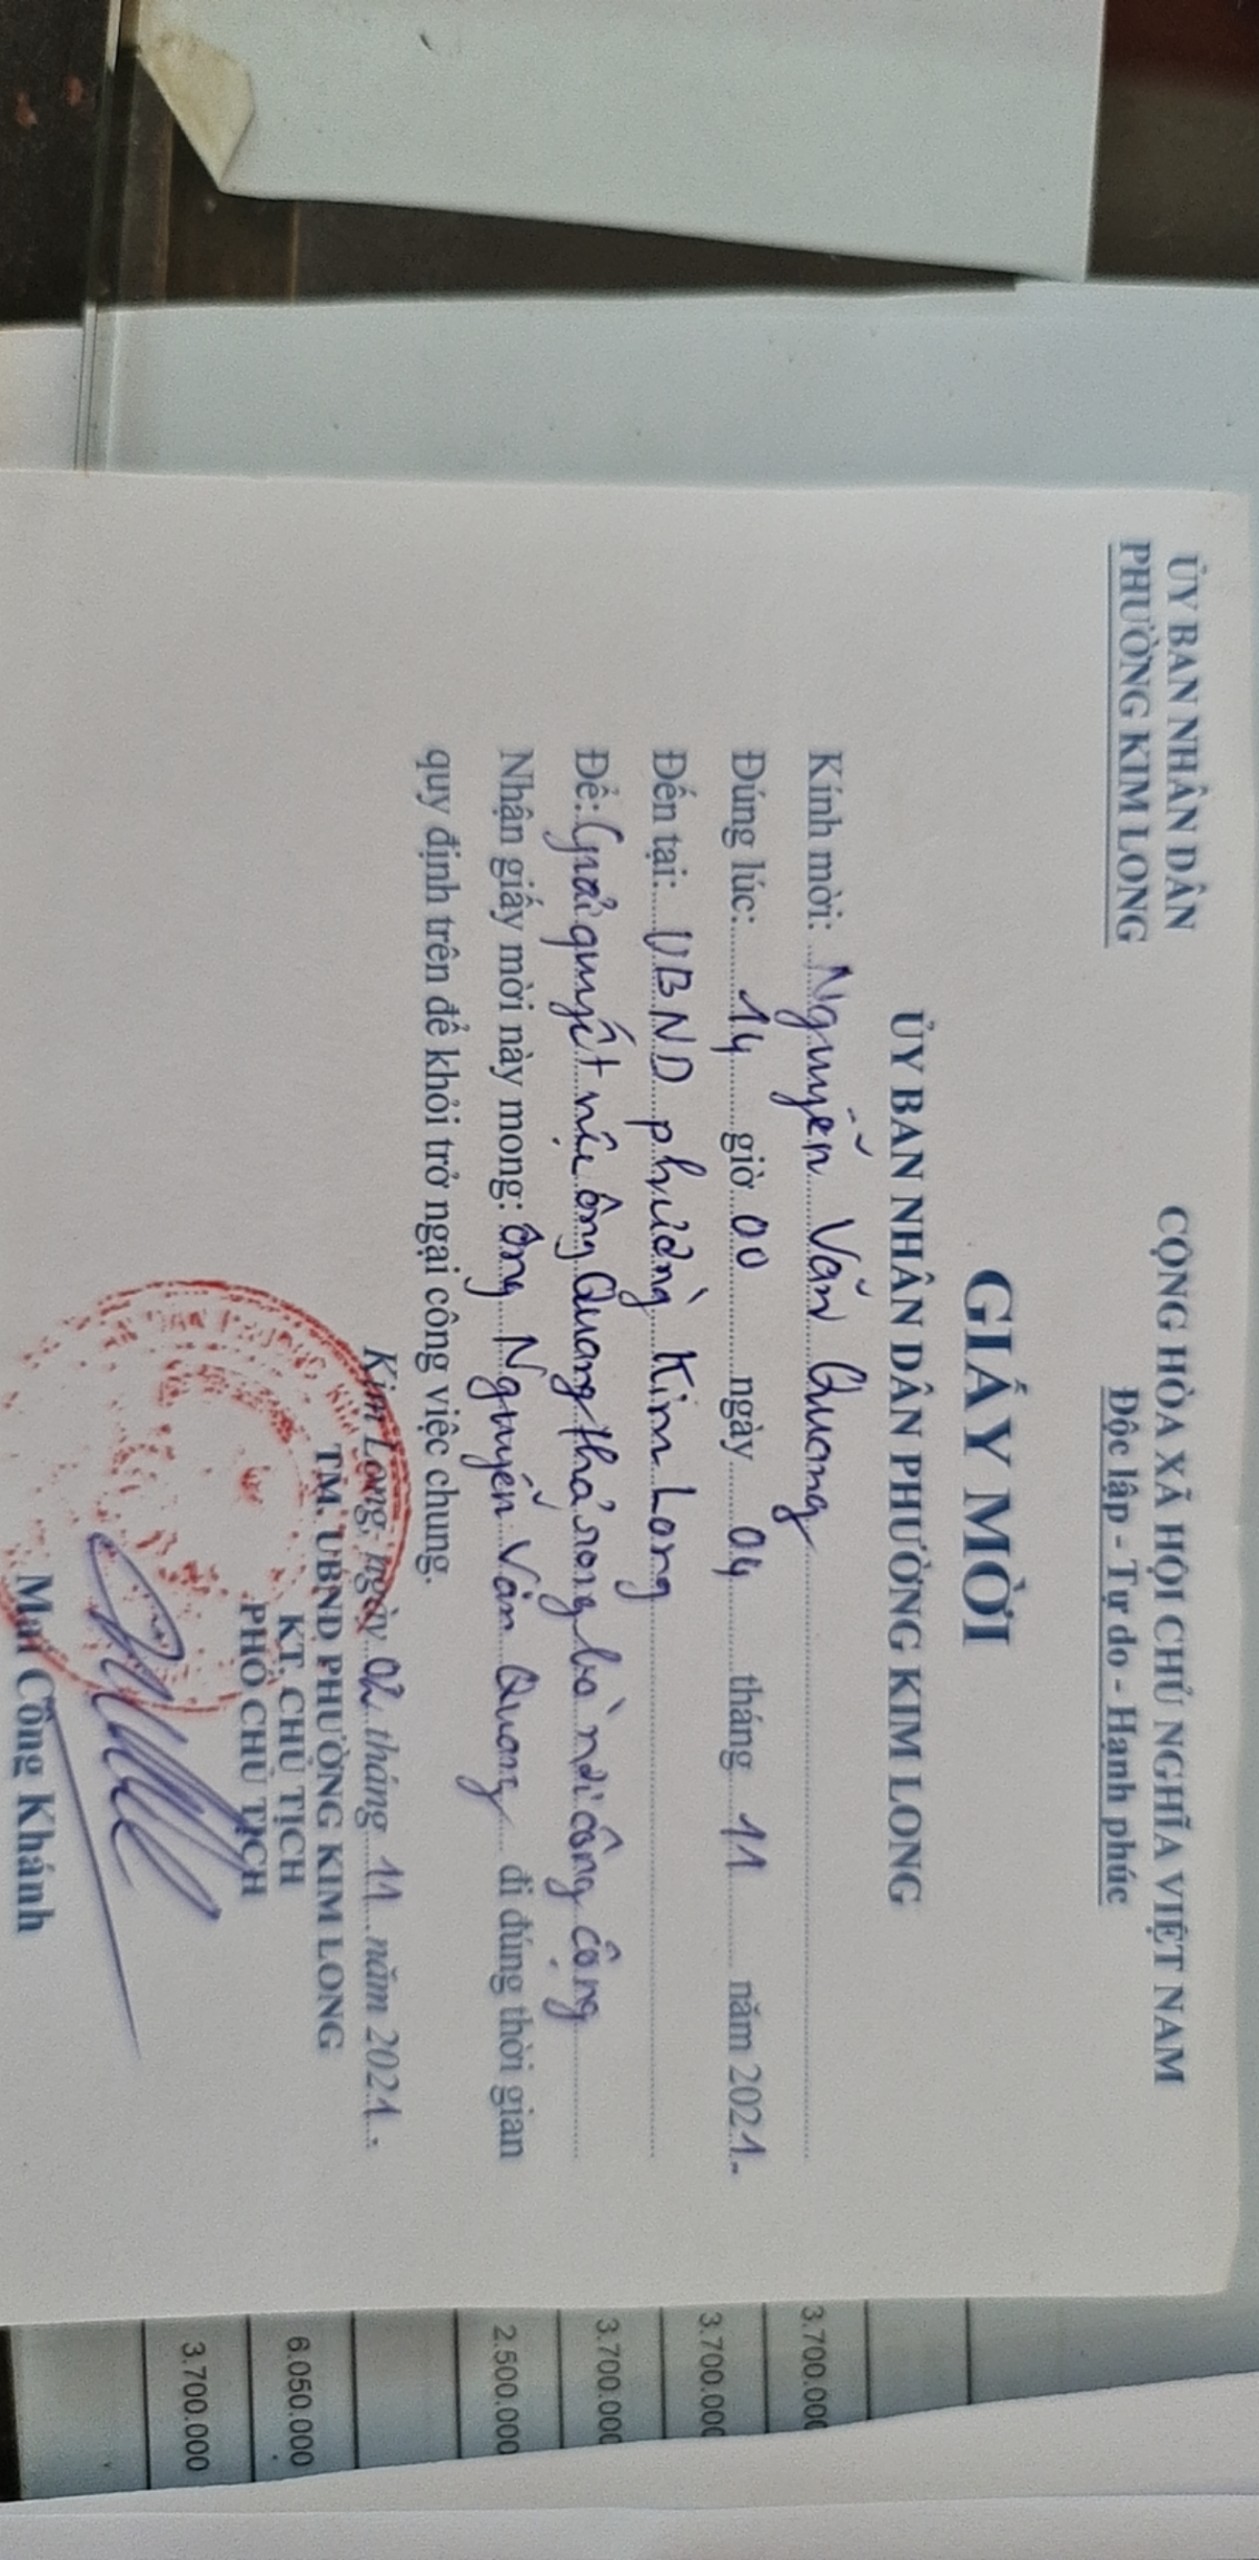 ỦY BAN NHÂN DÂN
PHƯỜNG KIM LONG
CỘNG HÒA XÃ HỘI CHỦ NGHĨA VIỆT NAM
Độc lập - Tự do - Hạnh phúc
GIẤY MỜI
ỦY BAN NHÂN DÂN PHƯỜNG KIM LONG
Kính mời: Nguyễn Văn Quang
Đúng lúc: 14 giờ 00 ngày 04 tháng 11 năm 2021.
Đến tại: UBND phường Kim Long
Để: Giải quyết việc ông Quang thả rong bò nơi công cộng
Nhận giấy mời này mong: Ông Nguyễn Văn Quang đi đúng thời gian
quy định trên để khỏi trở ngại công việc chung.
Kim Long, ngày 02 tháng 11 năm 2021.
TM. UBND PHƯỜNG KIM LONG
KT. CHỦ TỊCH
PHÓ CHỦ TỊCH
Mai Công Khánh
3.700.000
3.700.000
3.700.000
2.500.000
6.050.000
3.700.000